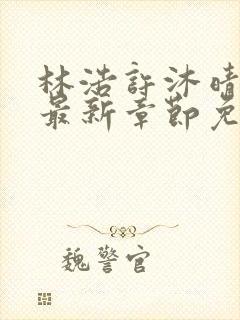 林浩許沐晴
最新章節免
魏警官